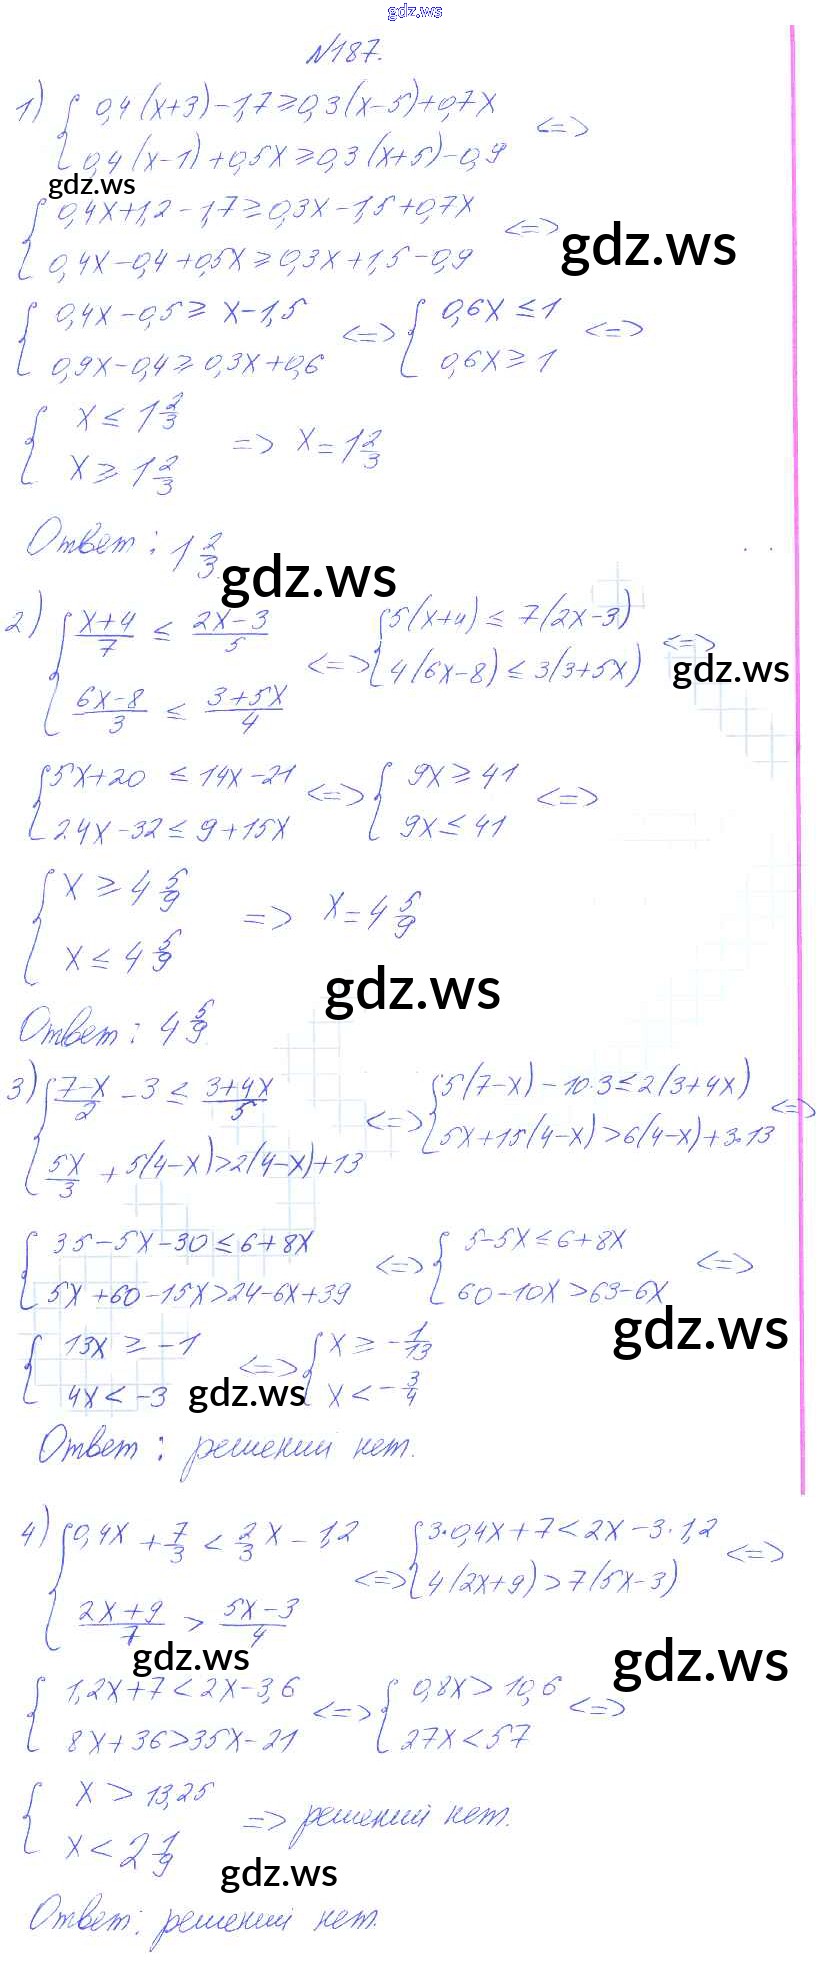 gdz.ws
№187.
1) { 0,4(x+3)-1,7≥0,3(x-5)+0,7x
0,4(x-1)+0,5x≥0,3(x+5)-0,9 <=>
gdz.ws
{ 0,4x+1,2-1,7≥0,3x-1,5+0,7x
0,4x-0,4+0,5x≥0,3x+1,5-0,9 <=>
gdz.ws
{ 0,4x-0,5≥x-1,5 <=> { 0,6x≤1 <=>
0,9x-0,4≥0,3x+0,6 0,6x≥1
{ x≤1 2/3
x≥1 2/3 => x=1 2/3
Ответ: 1 2/3.
gdz.ws
2) { (x+4)/7 ≤ (2x-3)/5 <=> { 5(x+4)≤7(2x-3) <=>
(6x-8)/3 ≤ (3+5x)/4 4(6x-8)≤3(3+5x)
gdz.ws
{ 5x+20≤14x-21 <=> { 9x≥41 <=>
24x-32≤9+15x 9x≤41
{ x≥4 5/9
x≤4 5/9 => x=4 5/9
gdz.ws
Ответ: 4 5/9.
3) { (7-x)/2 -3≤ (3+4x)/5 <=> { 5(7-x)-10·3≤2(3+4x) <=>
5x/3 +5(4-x)>2(4-x)+13 5x+15(4-x)>6(4-x)+3·13
{ 35-5x-30≤6+8x <=> { 5-5x≤6+8x <=>
5x+60-15x>24-6x+39 60-10x>63-6x
gdz.ws
{ 13x≥-1 <=> { x≥-1/13
4x<-3 x<-3/4
gdz.ws
Ответ: решений нет.
4) { 0,4x+7/3<2/3x-1,2 <=> { 3·0,4x+7<2x-3·1,2 <=>
(2x+9)/7 > (5x-3)/4 4(2x+9)>7(5x-3)
gdz.ws
gdz.ws
{ 1,2x+7<2x-3,6 <=> { 0,8x>10,6 <=>
8x+36>35x-21 27x<57
{ x>13,25
x<2 1/9 => решений нет.
gdz.ws
Ответ: решений нет.